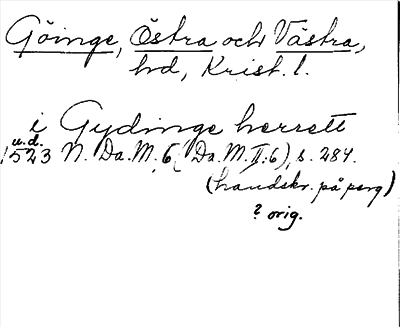 Göinge, Östra och Västra,
hd, Krist. l.
i Gydinge herrett
u.d.
1523 N. Da. M. 6 (Da. M. II. 6), s. 284.
(handskr. på perg)
? orig.